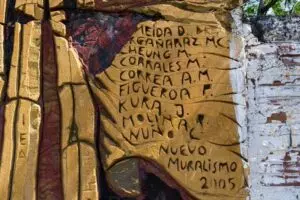 MEIDA D.
EGAÑARAZ MC.
CHEUNG M.
CORRALES M.
CORREA A.M.
FIGUEROA F.
KURA J.
MOLINA
NUÑO C.
NUEVO
MURALISMO
2005